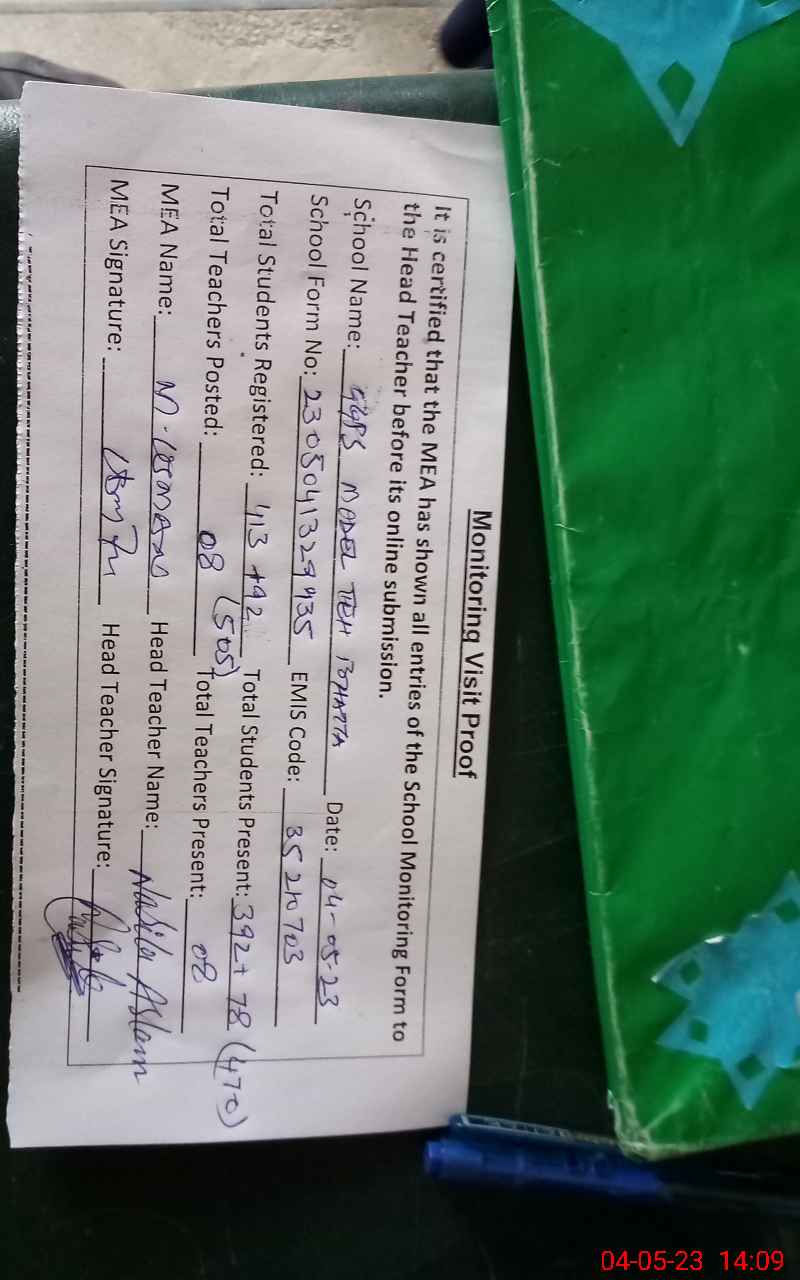 Monitoring Visit Proof
It is certified that the MEA has shown all entries of the School Monitoring Form to
the Head Teacher before its online submission.
School Name: GGPS MODEL TEH BHATTA Date: 04-05-23
School Form No: 2305041329935 EMIS Code: 35210703
Total Students Registered: 413 + 92 (505) Total Students Present: 392 + 78 (470)
Total Teachers Posted: 08 Total Teachers Present: 08
MEA Name: M. Head Teacher Name: Aslam
MEA Signature: Head Teacher Signature:
04-05-23 14:09